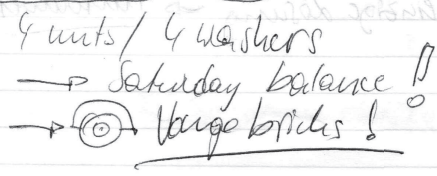 4 units / 4 washers
→ Saturday balance !!
→ bricks !